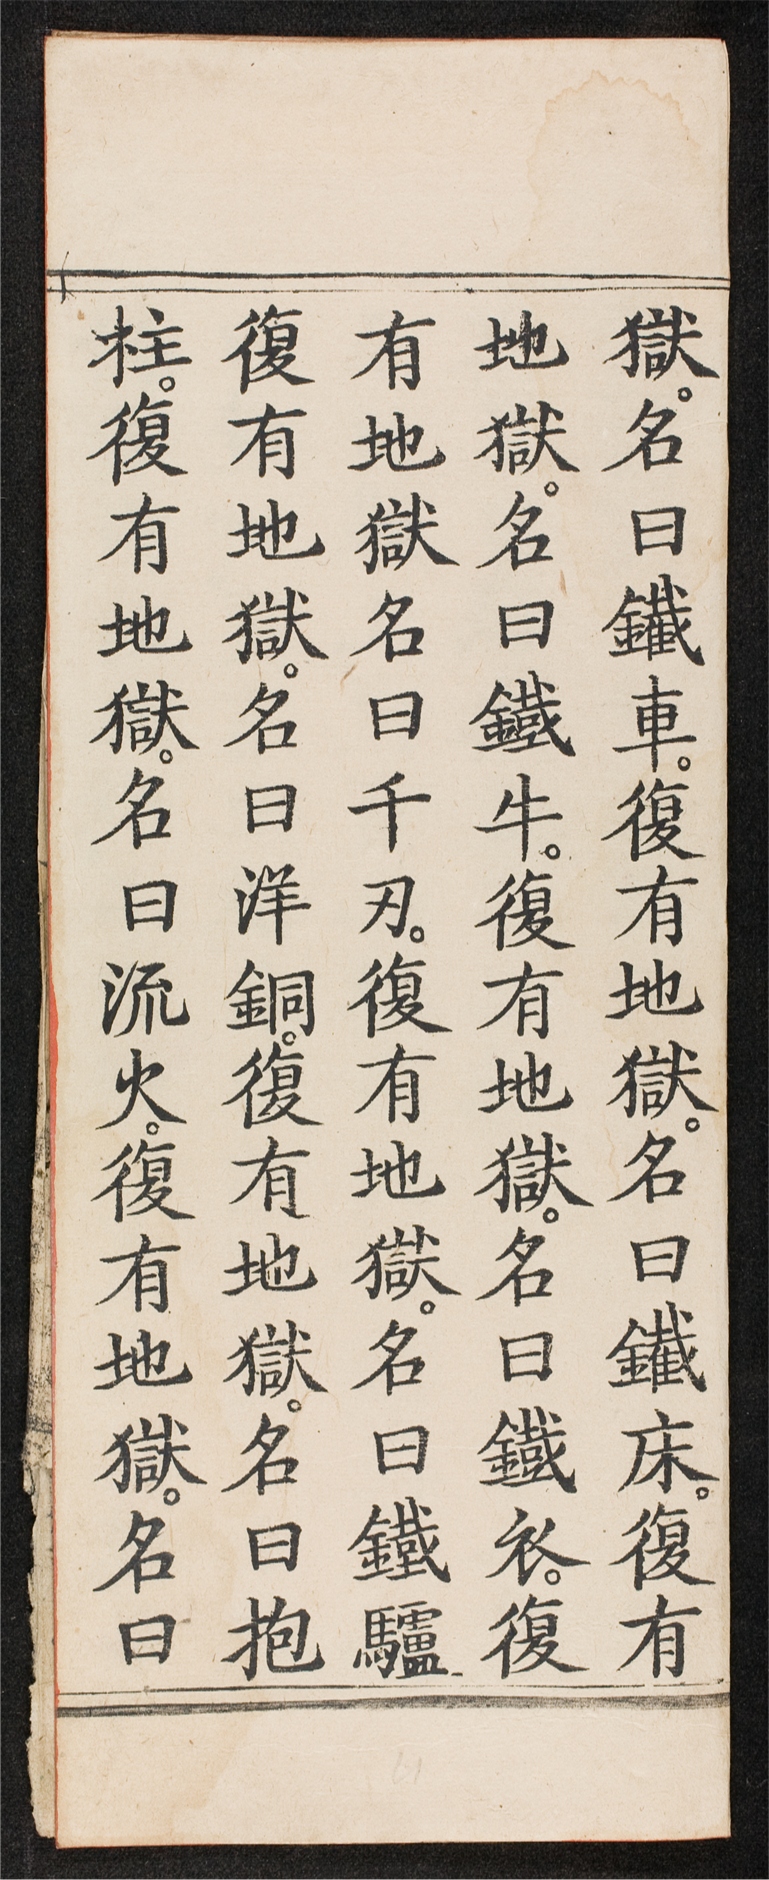 獄。名曰鐵車。復有地獄。名曰鐵床。復有
地獄。名曰鐵牛。復有地獄。名曰鐵衣。復
有地獄名曰千刃。復有地獄。名曰鐵驢
復有地獄。名曰洋銅。復有地獄。名曰抱
柱。復有地獄。名曰流火。復有地獄。名曰